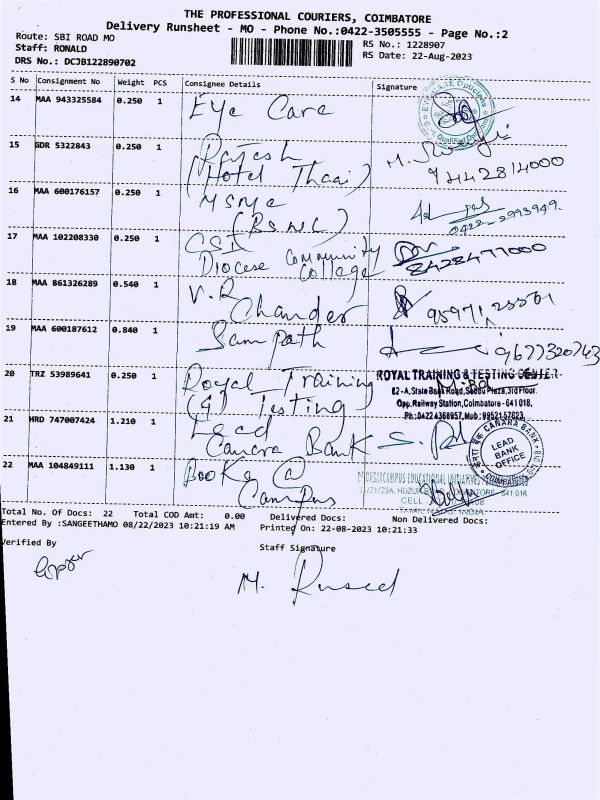 THE PROFESSIONAL COURIERS, COIMBATORE
Delivery Runsheet - MO - Phone No.:0422-3505555 - Page No.:2
Route: SBI ROAD MO
RS No.: 1228907
Staff: RONALD
RS Date: 22-Aug-2023
DRS No.: DCJB122890702
S No Consignment No Weight PCS Consignee Details Signature
14 MAA 943325584 0.250 1 Eye Care
15 GDR 5322843 0.250 1 Rajesh
(Hotel Thaai)
9442814000
16 MAA 600176157 0.250 1 MSME
(BSNL)
0422-2993949
17 MAA 102208330 0.250 1 CSI
Diocese Community College
8428477000
18 MAA 861326289 0.540 1 V.R
Chander
19 MAA 600187612 0.840 1 Sampath
9677320743
20 TRZ 53989641 0.250 1 Royal Training
(4) Testing
ROYAL TRAINING & TESTING CENTER
82-A, State Bank Road, Plaza, 3rd Floor.
Opp. Railway Station, Coimbatore - 641 018,
Ph: 0422 4368957, Mob: 9952157623
21 HRD 747007424 1.210 1 Lead
Canara Bank
CANARA BANK
LEAD
BANK
OFFICE
COIMBATORE
22 MAA 104849111 1.130 1 Books @
Campus
EDUCATIONAL
641 018
CELL
Total No. Of Docs: 22 Total COD Amt: 0.00 Delivered Docs: Non Delivered Docs:
Entered By :SANGEETHAMO 08/22/2023 10:21:19 AM Printed On: 22-08-2023 10:21:33
Verified By Staff Signature